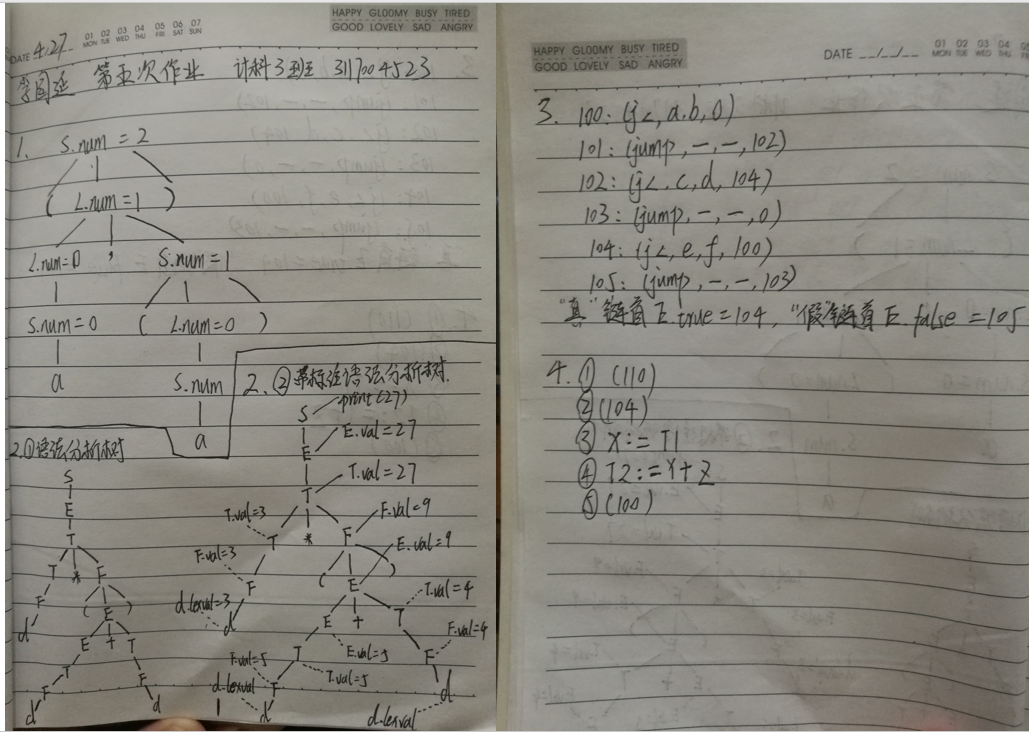 HAPPY GLOOMY BUSY TIRED
GOOD LOVELY SAD ANGRY
DATE 4.27
01 02 03 04 05 06 07
MON TUE WED THU FRI SAT SUN
第五次作业 计科3班 3117004523
1. S.num=2
( L.num=1 )
L.num=0 , S.num=1
S.num=0 ( L.num=0 )
a S.num
a
2.①语法分析树
S
E
T
T * F
F ( E )
d E + T
T F
F d
d
2.②带标注语法分析树.
S print(27)
E E.val=27
T T.val=27
T.val=3 T * F F.val=9
F.val=3 F ( E ) E.val=9
d.lexval=3 d E + T T.val=4
T E.val=5 F F.val=4
F.val=5 F T.val=5 d
d.lexval d d.lexval
HAPPY GLOOMY BUSY TIRED
GOOD LOVELY SAD ANGRY
DATE __/__/__
01 02 03 04 05
MON TUE WED THU
3. 100: (j<, a.b, 0)
101: (jump, —, —, 102)
102: (j<. c, d, 104)
103: (jump, —, —, 0)
104: (j<, e, f, 100)
105: (jump, —, —, 103)
"真"链首E.true=104, "假"链首E.false=105
4. ① (110)
② (104)
③ X:=T1
④ T2:=Y+Z
⑤ (100)